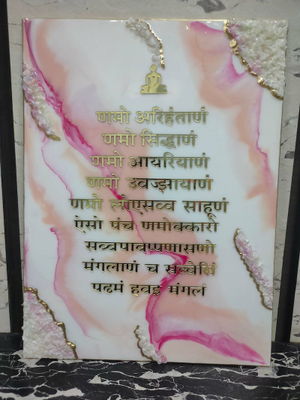 णमो अरिहंताणं
णमो सिद्धाणं
णमो आयरियाणं
णमो उवज्झायाणं
णमो लोएसव्व साहूणं
ऐसो पंच णमोक्कारो
सव्वपावप्पणासणो
मंगलाणं च सव्वेसिं
पढमं हवइ मंगलं